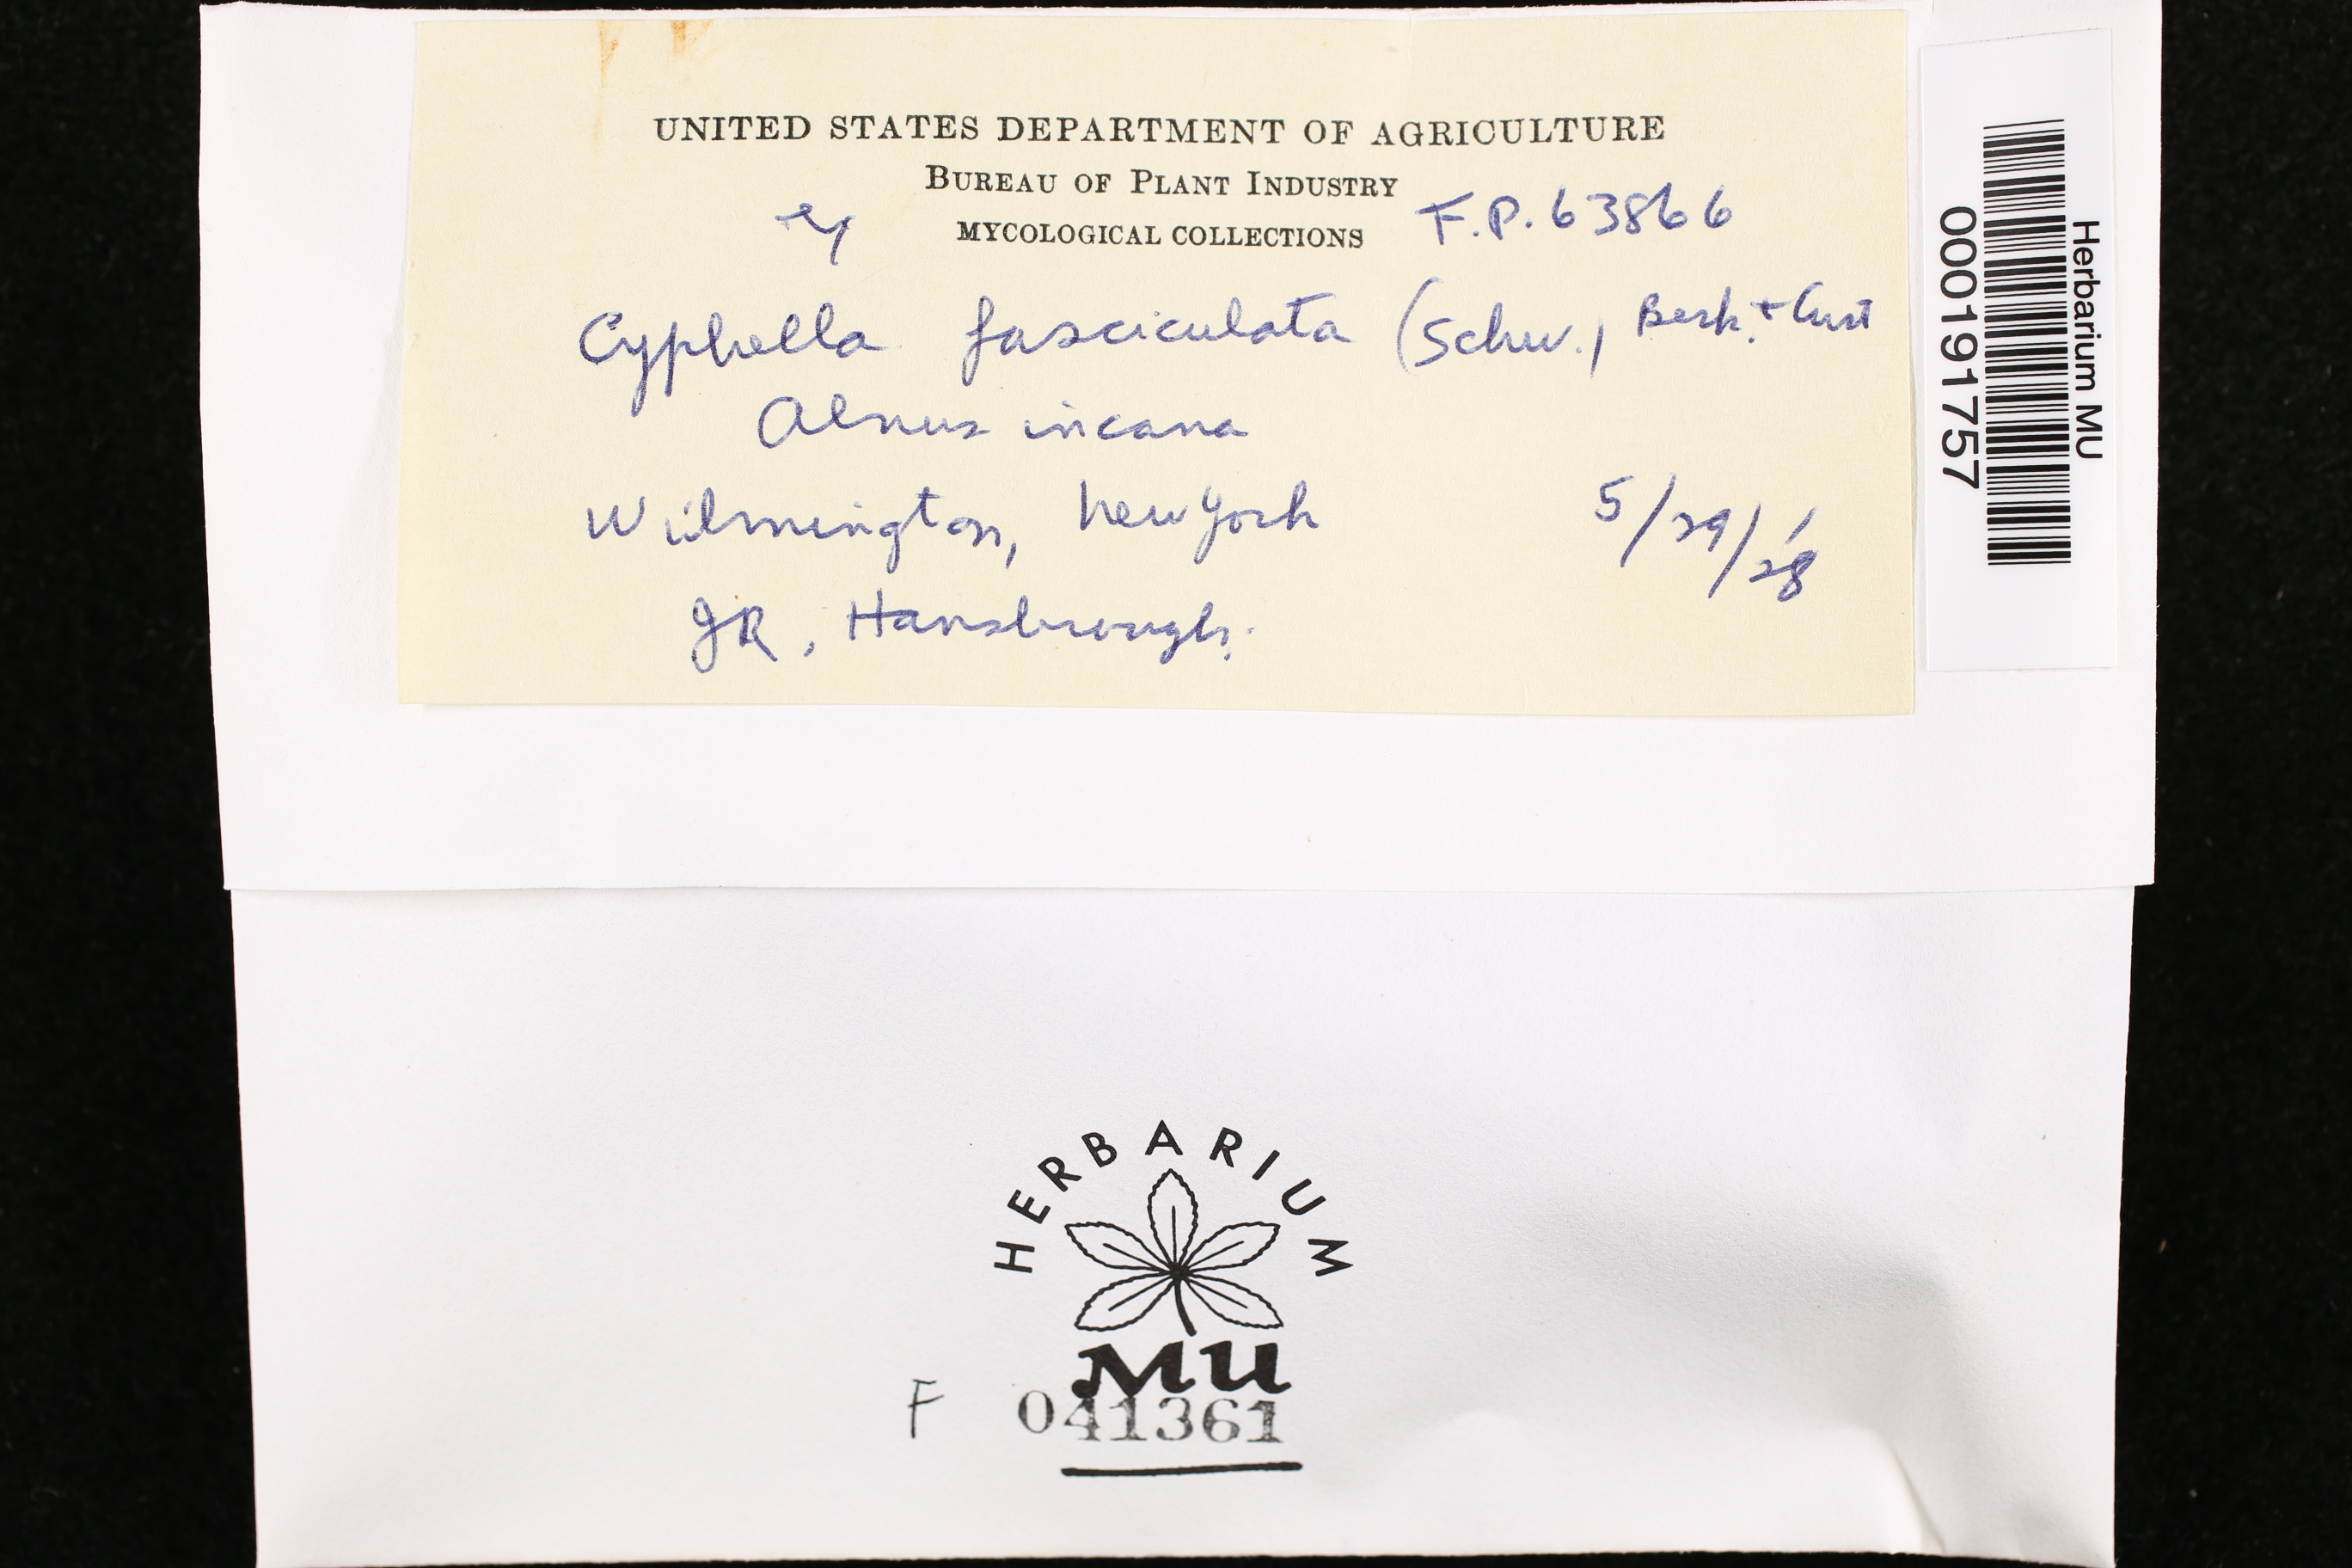 UNITED STATES DEPARTMENT OF AGRICULTURE
BUREAU OF PLANT INDUSTRY
ex MYCOLOGICAL COLLECTIONS F.P. 63866
Cyphella fasciculata (Schw.) Berk. + Curt
Alnus incana
Wilmington, New York 5/29/28
JR, Hansbrough.
Herbarium MU
000191757
HERBARIUM
MU
F 041361